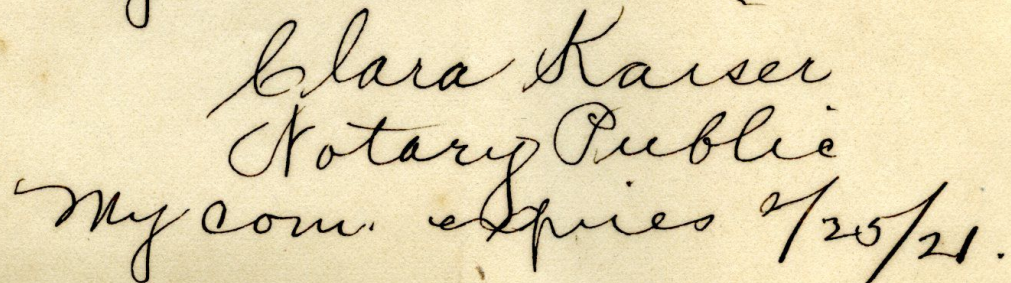 Clara Kaiser
Notary Public
My com. expires 2/25/21.